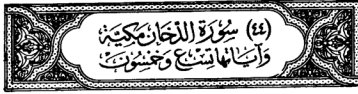 (٤٤) سُورَةُ الدُّخَانِ مَكِّيَّة
وَآيَاتُهَا تِسْعٌ وَخَمْسُونَ